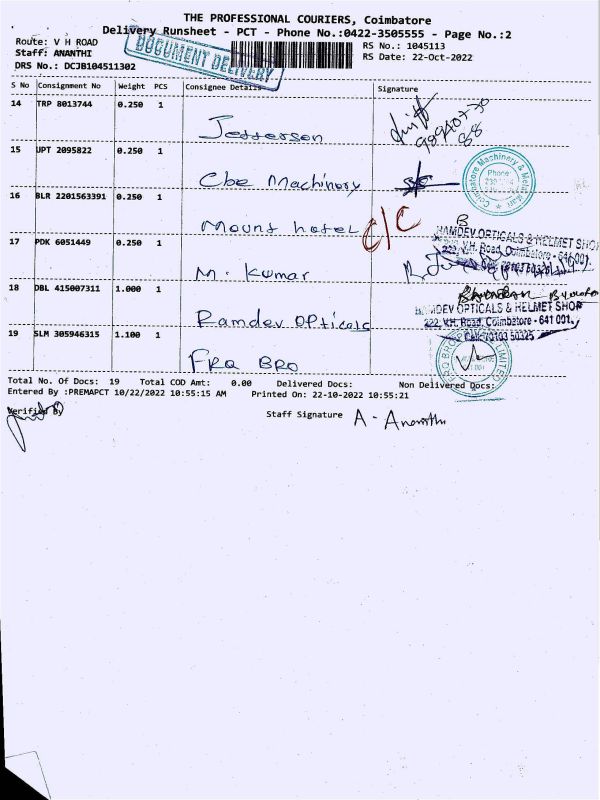 THE PROFESSIONAL COURIERS, Coimbatore
Delivery Runsheet - PCT - Phone No.:0422-3505555 - Page No.:2
Route: V H ROAD
RS No.: 1045113
Staff: ANANTHI
RS Date: 22-Oct-2022
DRS No.: DCJB104511302
DOCUMENT DELIVERY
S No Consignment No Weight PCS Consignee Details Signature
14 TRP 8013744 0.250 1
Jefferson
15 JPT 2095822 0.250 1
Cbe Machinery
Coimbatore Machinery &
Phone
16 BLR 2201563391 0.250 1
Mount hotel C/C
17 PDK 6051449 0.250 1
M. Kumar
RAMDEV OPTICALS & HELMET SHOP
222, V.H. Road, Coimbatore - 641 001.
18 DBL 415007311 1.000 1
Ramdev Opticals
RAMDEV OPTICALS & HELMET SHOP
222, V.H. Road, Coimbatore - 641 001.
Cell: 70103 50325
19 SLM 305946315 1.100 1
FRQ BRO
LIMITED
Total No. Of Docs: 19 Total COD Amt: 0.00 Delivered Docs: Non Delivered Docs:
Entered By :PREMAPCT 10/22/2022 10:55:15 AM Printed On: 22-10-2022 10:55:21
Verified By
Staff Signature A. Ananthi